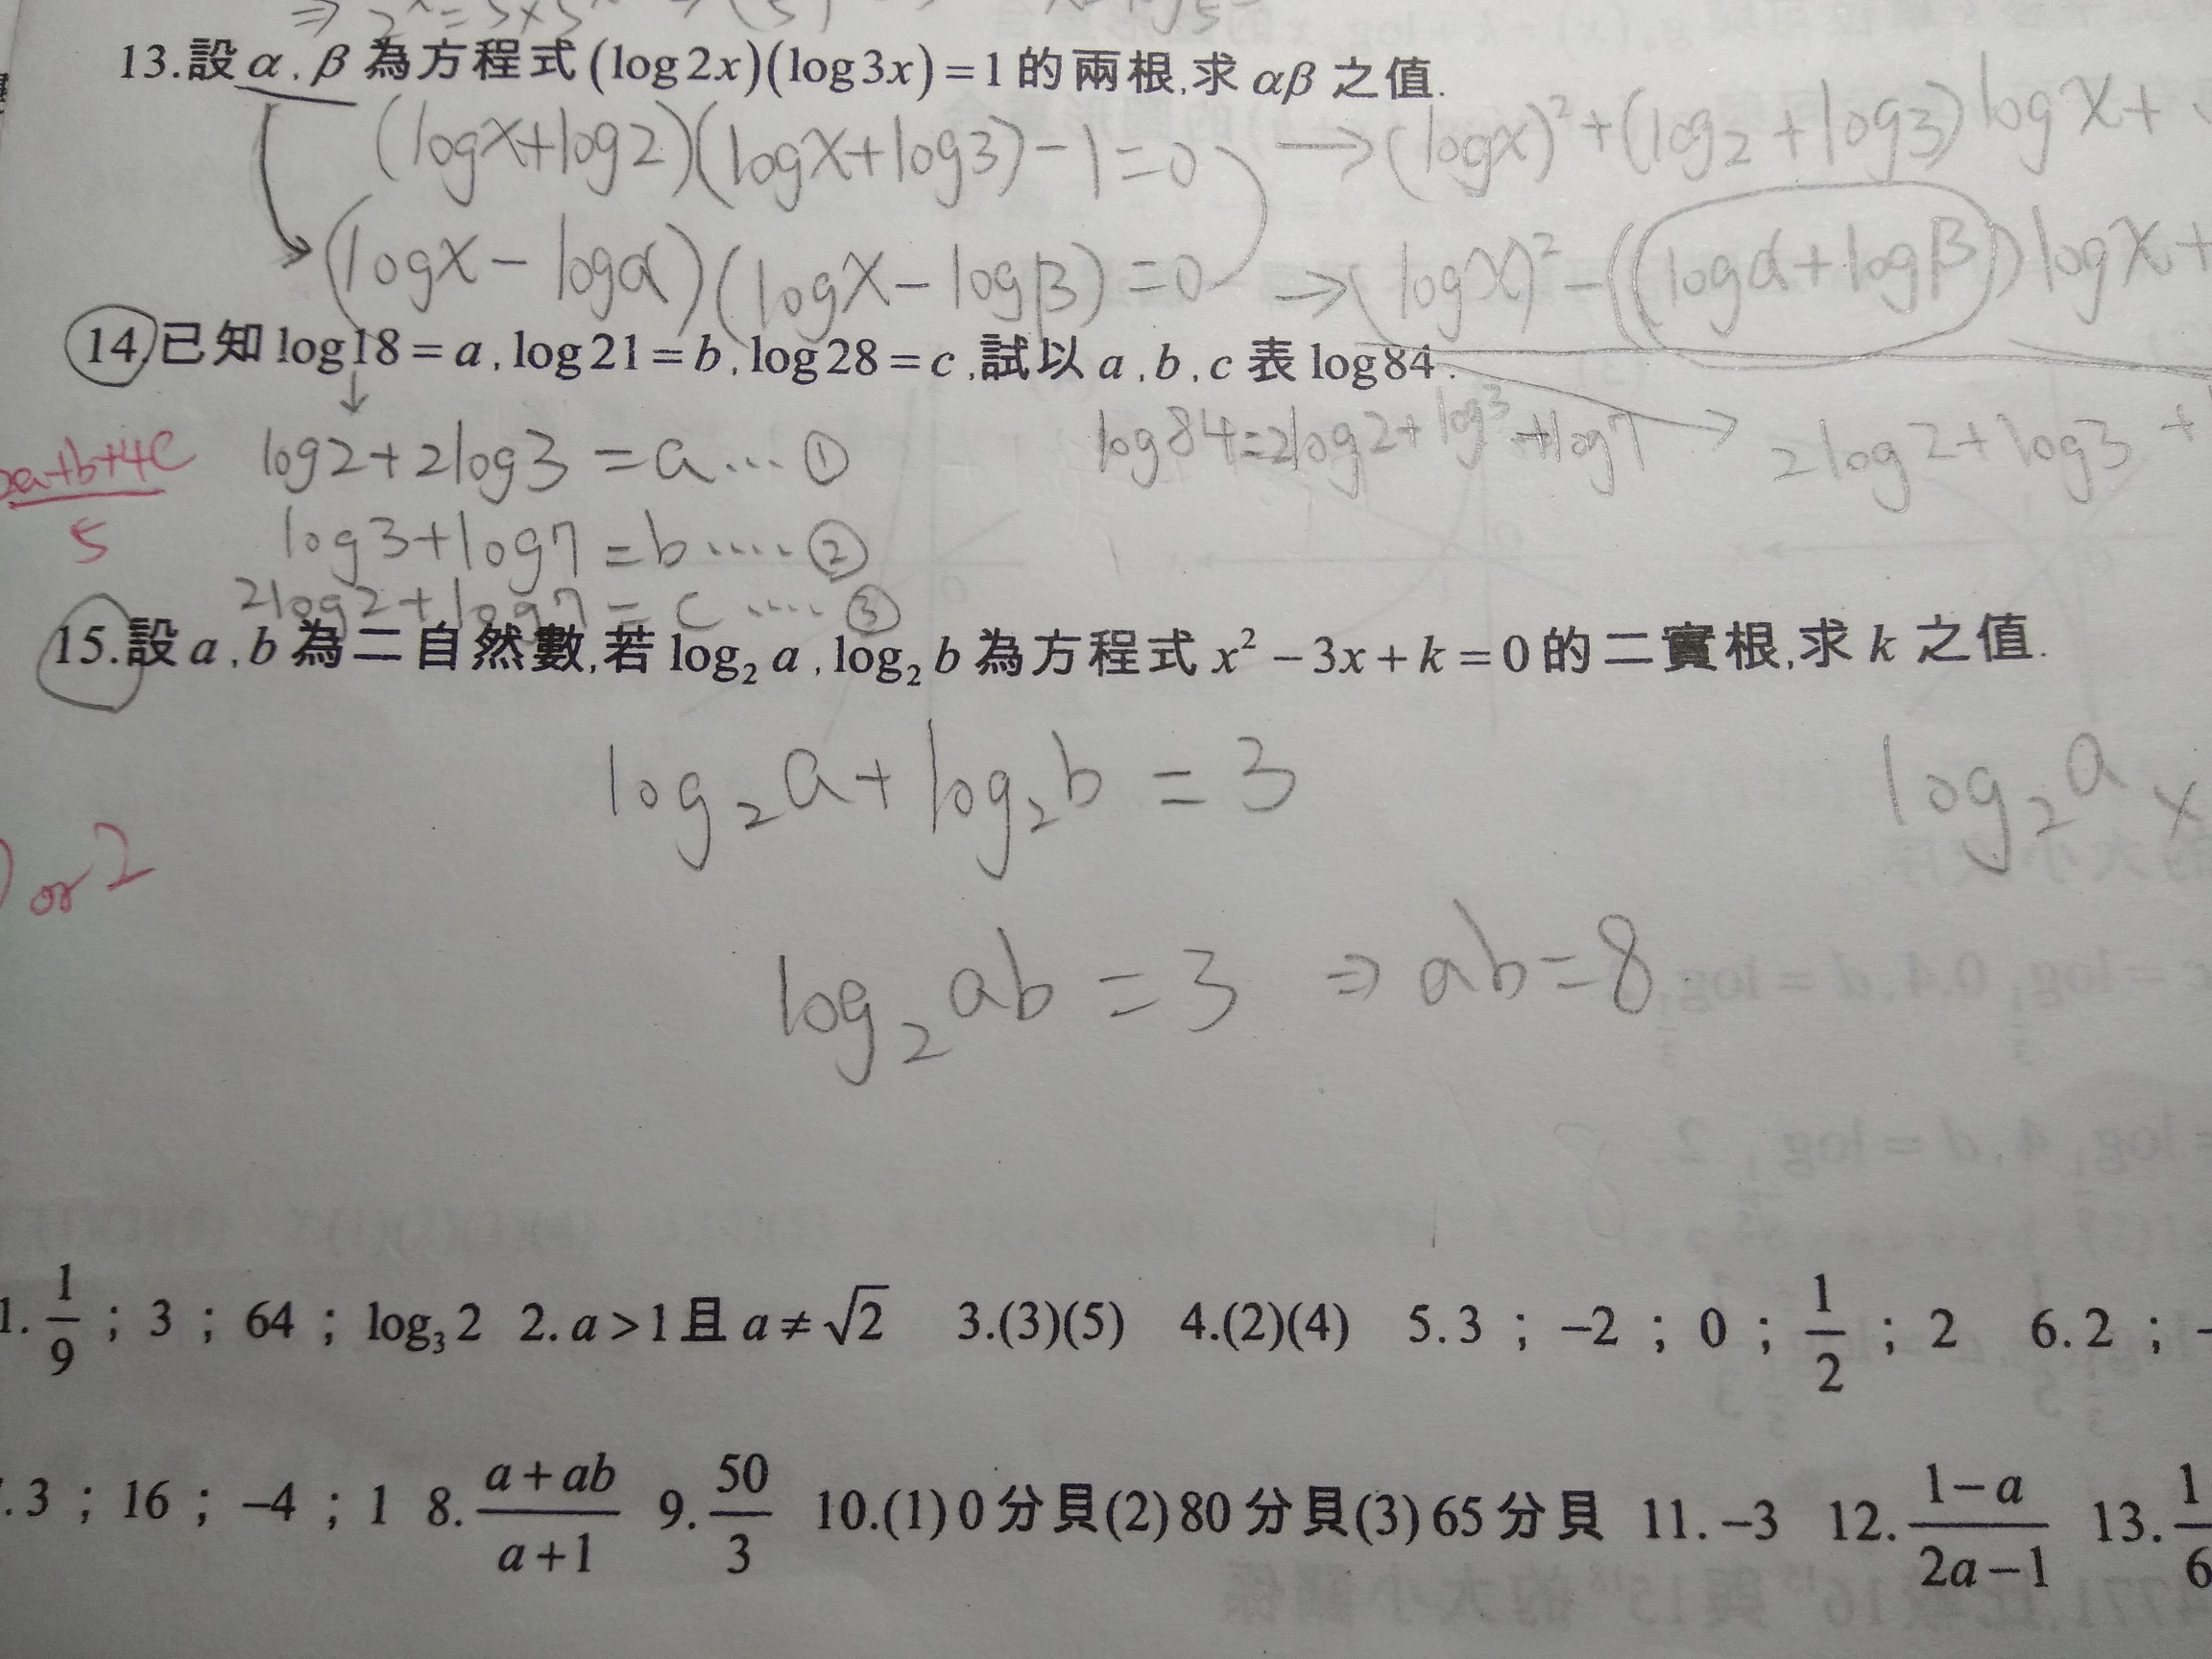 13.設α,β為方程式(log2x)(log3x)=1的兩根,求αβ之值.
(logx+log2)(logx+log3)-1=0 → (logx)²+(log2+log3)logx+
(logx-logα)(logx-logβ)=0 → (logx)²-(logα+logβ)logx+
14.已知log18=a,log21=b,log28=c,試以a,b,c表log84.
log2+2log3=a…① log84=2log2+log3+log7 → 2log2+log3+
a+b+4c
5
log3+log7=b……②
2log2+log7=c……③
15.設a,b為二自然數,若log₂a,log₂b為方程式x²-3x+k=0的二實根,求k之值.
log₂a+log₂b=3 log₂a×
or 2
log₂ab=3 ⇒ab=8
1. 1/9 ; 3 ; 64 ; log₃2 2. a>1且a≠√2 3.(3)(5) 4.(2)(4) 5. 3 ; -2 ; 0 ; 1/2 ; 2 6. 2 ;
.3 ; 16 ; -4 ; 1 8. (a+ab)/(a+1) 9. 50/3 10.(1)0分貝(2)80分貝(3)65分貝 11. -3 12. (1-a)/(2a-1) 13. 1/6